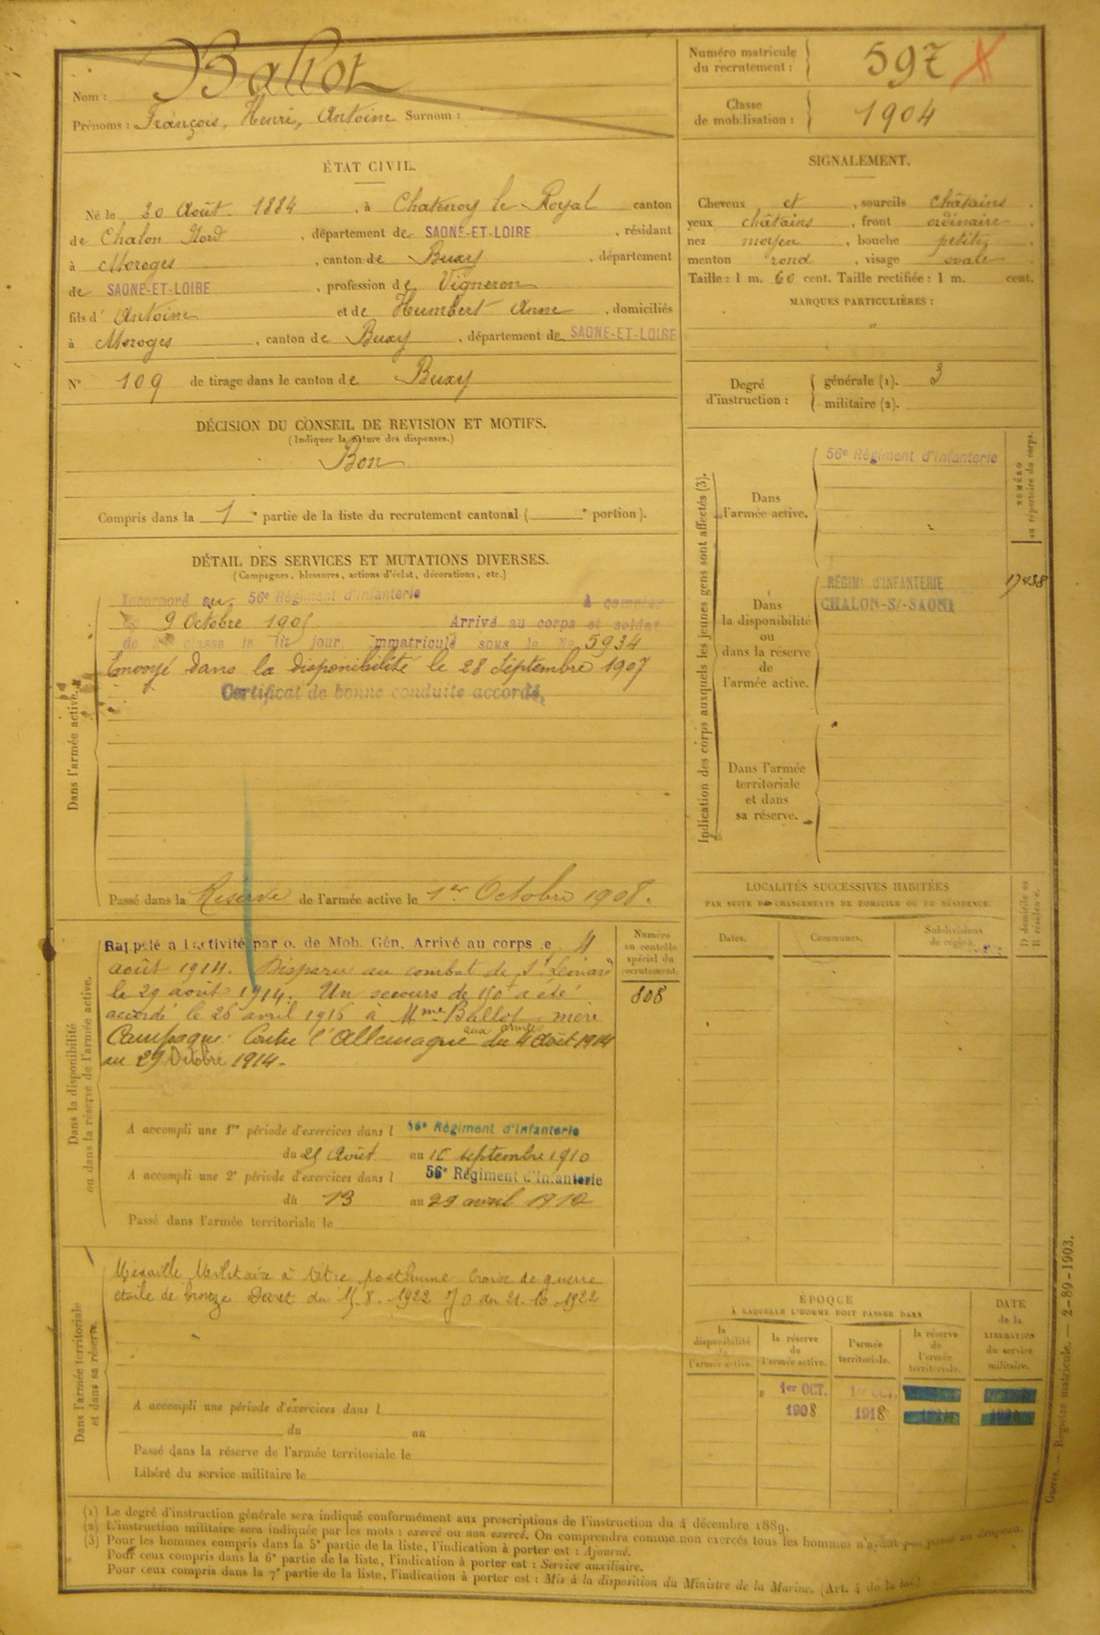 Nom : Ballot
Prénoms : François, Henri, Antoine Surnom :
Numéro matricule du recrutement : 597 X
Classe de mobilisation : 1904
ÉTAT CIVIL.
Né le 30 Août 1884, à Chatenoy le Royal canton
de Chalon Nord, département de SAONE-ET-LOIRE, résidant
à Moroges, canton de Buxy, département
de SAONE-ET-LOIRE, profession de Vigneron
fils d' Antoine et de Humbert Anne, domiciliés
à Moroges, canton de Buxy, département de SAONE-ET-LOIRE
N° 109 de tirage dans le canton de Buxy
SIGNALEMENT.
Cheveux et, sourcils châtains.
yeux châtains, front ordinaire
nez moyen, bouche petite,
menton rond, visage ovale.
Taille : 1 m. 60 cent. Taille rectifiée : 1 m. cent.
MARQUES PARTICULIÈRES :
"
Degré d'instruction : générale (1). 3
militaire (2).
DÉCISION DU CONSEIL DE REVISION ET MOTIFS.
(Indiquer la nature des dispenses.)
Bon
Compris dans la 1e partie de la liste du recrutement cantonal ( e portion).
DÉTAIL DES SERVICES ET MUTATIONS DIVERSES.
(Campagnes, blessures, actions d'éclat, décorations, etc.)
Dans l'armée active.
Incorporé au 56e Régiment d'Infanterie à compter
9 Octobre 1905 Arrivé au corps et soldat
de 2e classe le dit jour, immatriculé sous le No 5934
Envoyé dans la disponibilité le 28 Septembre 1907
Certificat de bonne conduite accordé.
Passé dans la Réserve de l'armée active le 1er Octobre 1908.
Indication des corps auxquels les jeunes gens sont affectés (3).
NUMÉRO au répertoire du corps.
Dans l'armée active.
56e Régiment d'Infanterie
Dans la disponibilité ou dans la réserve de l'armée active.
RÉGIMt D'INFANTERIE
CHALON-S/-SAONE
Dans l'armée territoriale et dans sa réserve.
LOCALITÉS SUCCESSIVES HABITÉES
PAR SUITE DE CHANGEMENTS DE DOMICILE OU DE RÉSIDENCE.
Dates.
Communes.
Subdivisions de région.
D domicile ou R résidence.
Dans la disponibilité ou dans la réserve de l'armée active.
Numéro au contrôle spécial du recrutement.
808
Rappelé à l'activité par o. de Mob. Gén. Arrivé au corps le 4
août 1914. Disparu au combat de St Léonard
le 29 août 1914. Un secours de 150f a été
accordé le 26 avril 1916 à Mme Ballot mère
Campagne Contre l'Allemagne aux armées du 4 Août 1914
au 29 Octobre 1914.
A accompli une 1re période d'exercices dans l 56e Régiment d'Infanterie
du 21 Août au septembre 1910
A accompli une 2e période d'exercices dans l 56e Régiment d'Infanterie
du 13 au 29 avril 1912
Passé dans l'armée territoriale le
Dans l'armée territoriale et dans sa réserve.
Médaille Militaire à titre posthume Croix de guerre
étoile de bronze Décret du 8. 1922 JO du 21-10-1922
A accompli une période d'exercices dans l
du au
Passé dans la réserve de l'armée territoriale le
Libéré du service militaire le
ÉPOQUE
À LAQUELLE L'HOMME DOIT PASSER DANS
la disponibilité de l'armée active.
la réserve de l'armée active.
l'armée territoriale.
la réserve de l'armée territoriale.
DATE de la LIBÉRATION du service militaire.
1er OCT. 1908
1er OCT. 1918
(1) Le degré d'instruction générale sera indiqué conformément aux prescriptions de l'instruction du 4 décembre 1889.
(2) L'instruction militaire sera indiquée par les mots : exercé ou non exercé. On comprendra comme non exercés tous les hommes n'ayant pas passé au drapeau.
(3) Pour les hommes compris dans la 5e partie de la liste, l'indication à porter est : Ajourné.
Pour ceux compris dans la 6e partie de la liste, l'indication à porter est : Service auxiliaire.
Pour ceux compris dans la 7e partie de la liste, l'indication à porter est : Mis à la disposition du Ministre de la Marine. (Art. 4 de la loi.)
Guerre. — Registre matricule. — 2-89-1903.